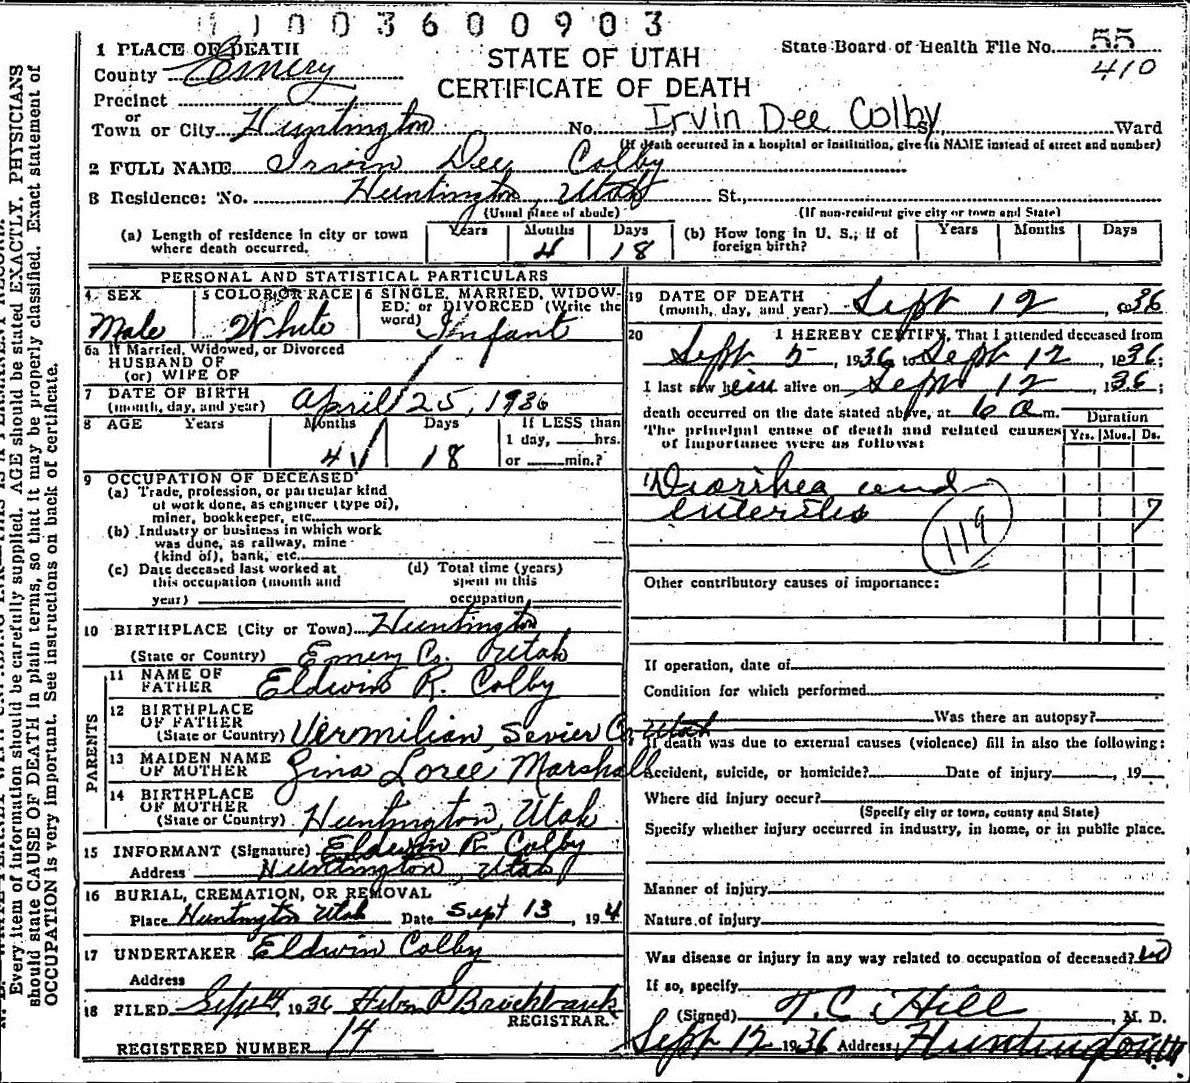 1 1 0 0 3 6 0 0 9 0 3
1 PLACE OF DEATH
County Emery
Precinct
or
Town or City Huntington No. St., Ward
STATE OF UTAH
CERTIFICATE OF DEATH
State Board of Health File No. 55
410
Irvin Dee Colby
(If death occurred in a hospital or institution, give its NAME instead of street and number)
2 FULL NAME Irvin Dee Colby
3 Residence: No. Huntington, Utah St.,
(Usual place of abode) (If non-resident give city or town and State)
(a) Length of residence in city or town where death occurred. Years Months 4 Days 18 (b) How long in U. S.; if of foreign birth? Years Months Days
PERSONAL AND STATISTICAL PARTICULARS
4 SEX Male
5 COLOR OR RACE White
6 SINGLE, MARRIED, WIDOWED, or DIVORCED (Write the word) Infant
6a If Married, Widowed, or Divorced
HUSBAND OF
(or) WIFE OF
7 DATE OF BIRTH
(month, day, and year) April 25, 1936
8 AGE Years Months 4 Days 18 If LESS than
1 day, hrs.
or min.?
9 OCCUPATION OF DECEASED
(a) Trade, profession, or particular kind
of work done, as engineer (type of),
miner, bookkeeper, etc.
(b) Industry or business in which work
was done, as railway, mine
(kind of), bank, etc.
(c) Date deceased last worked at
this occupation (month and
year)
(d) Total time (years)
spent in this
occupation
10 BIRTHPLACE (City or Town) Huntington
(State or Country) Emery Co. Utah
PARENTS
11 NAME OF
FATHER Eldwin R. Colby
12 BIRTHPLACE
OF FATHER
(State or Country) Vermilian, Sevier Co Utah
13 MAIDEN NAME
OF MOTHER Zina Loree Marshall
14 BIRTHPLACE
OF MOTHER
(State or Country) Huntington, Utah
15 INFORMANT (Signature) Eldwin R. Colby
Address Huntington, Utah
16 BURIAL, CREMATION, OR REMOVAL
Place Huntington Utah Date Sept 13, 19
17 UNDERTAKER Eldwin Colby
Address
18 FILED Sept 14, 1936 Heber P Brockbank
REGISTRAR.
REGISTERED NUMBER 14
19 DATE OF DEATH
(month, day, and year) Sept 12, 36
20 I HEREBY CERTIFY, That I attended deceased from
Sept 5, 1936 to Sept 12, 1936;
I last saw him alive on Sept 12, 1936;
death occurred on the date stated above, at 6 a m.
The principal cause of death and related causes
of importance were as follows:
Duration
Yrs. Mos. Ds.
Diarrhea and
enterites 7
119
Other contributory causes of importance:
If operation, date of
Condition for which performed
Was there an autopsy?
If death was due to external causes (violence) fill in also the following:
Accident, suicide, or homicide? Date of injury , 19
Where did injury occur?
(Specify city or town, county and State)
Specify whether injury occurred in industry, in home, or in public place.
Manner of injury
Nature of injury
Was disease or injury in any way related to occupation of deceased? no
If so, specify
(Signed) T. C. Hill, M. D.
Sept 12 1936 Address Huntington, Ut.
Every item of information should be carefully supplied. AGE should be stated EXACTLY. PHYSICIANS
should state CAUSE OF DEATH in plain terms, so that it may be properly classified. Exact statement of
OCCUPATION is very important. See instructions on back of certificate.